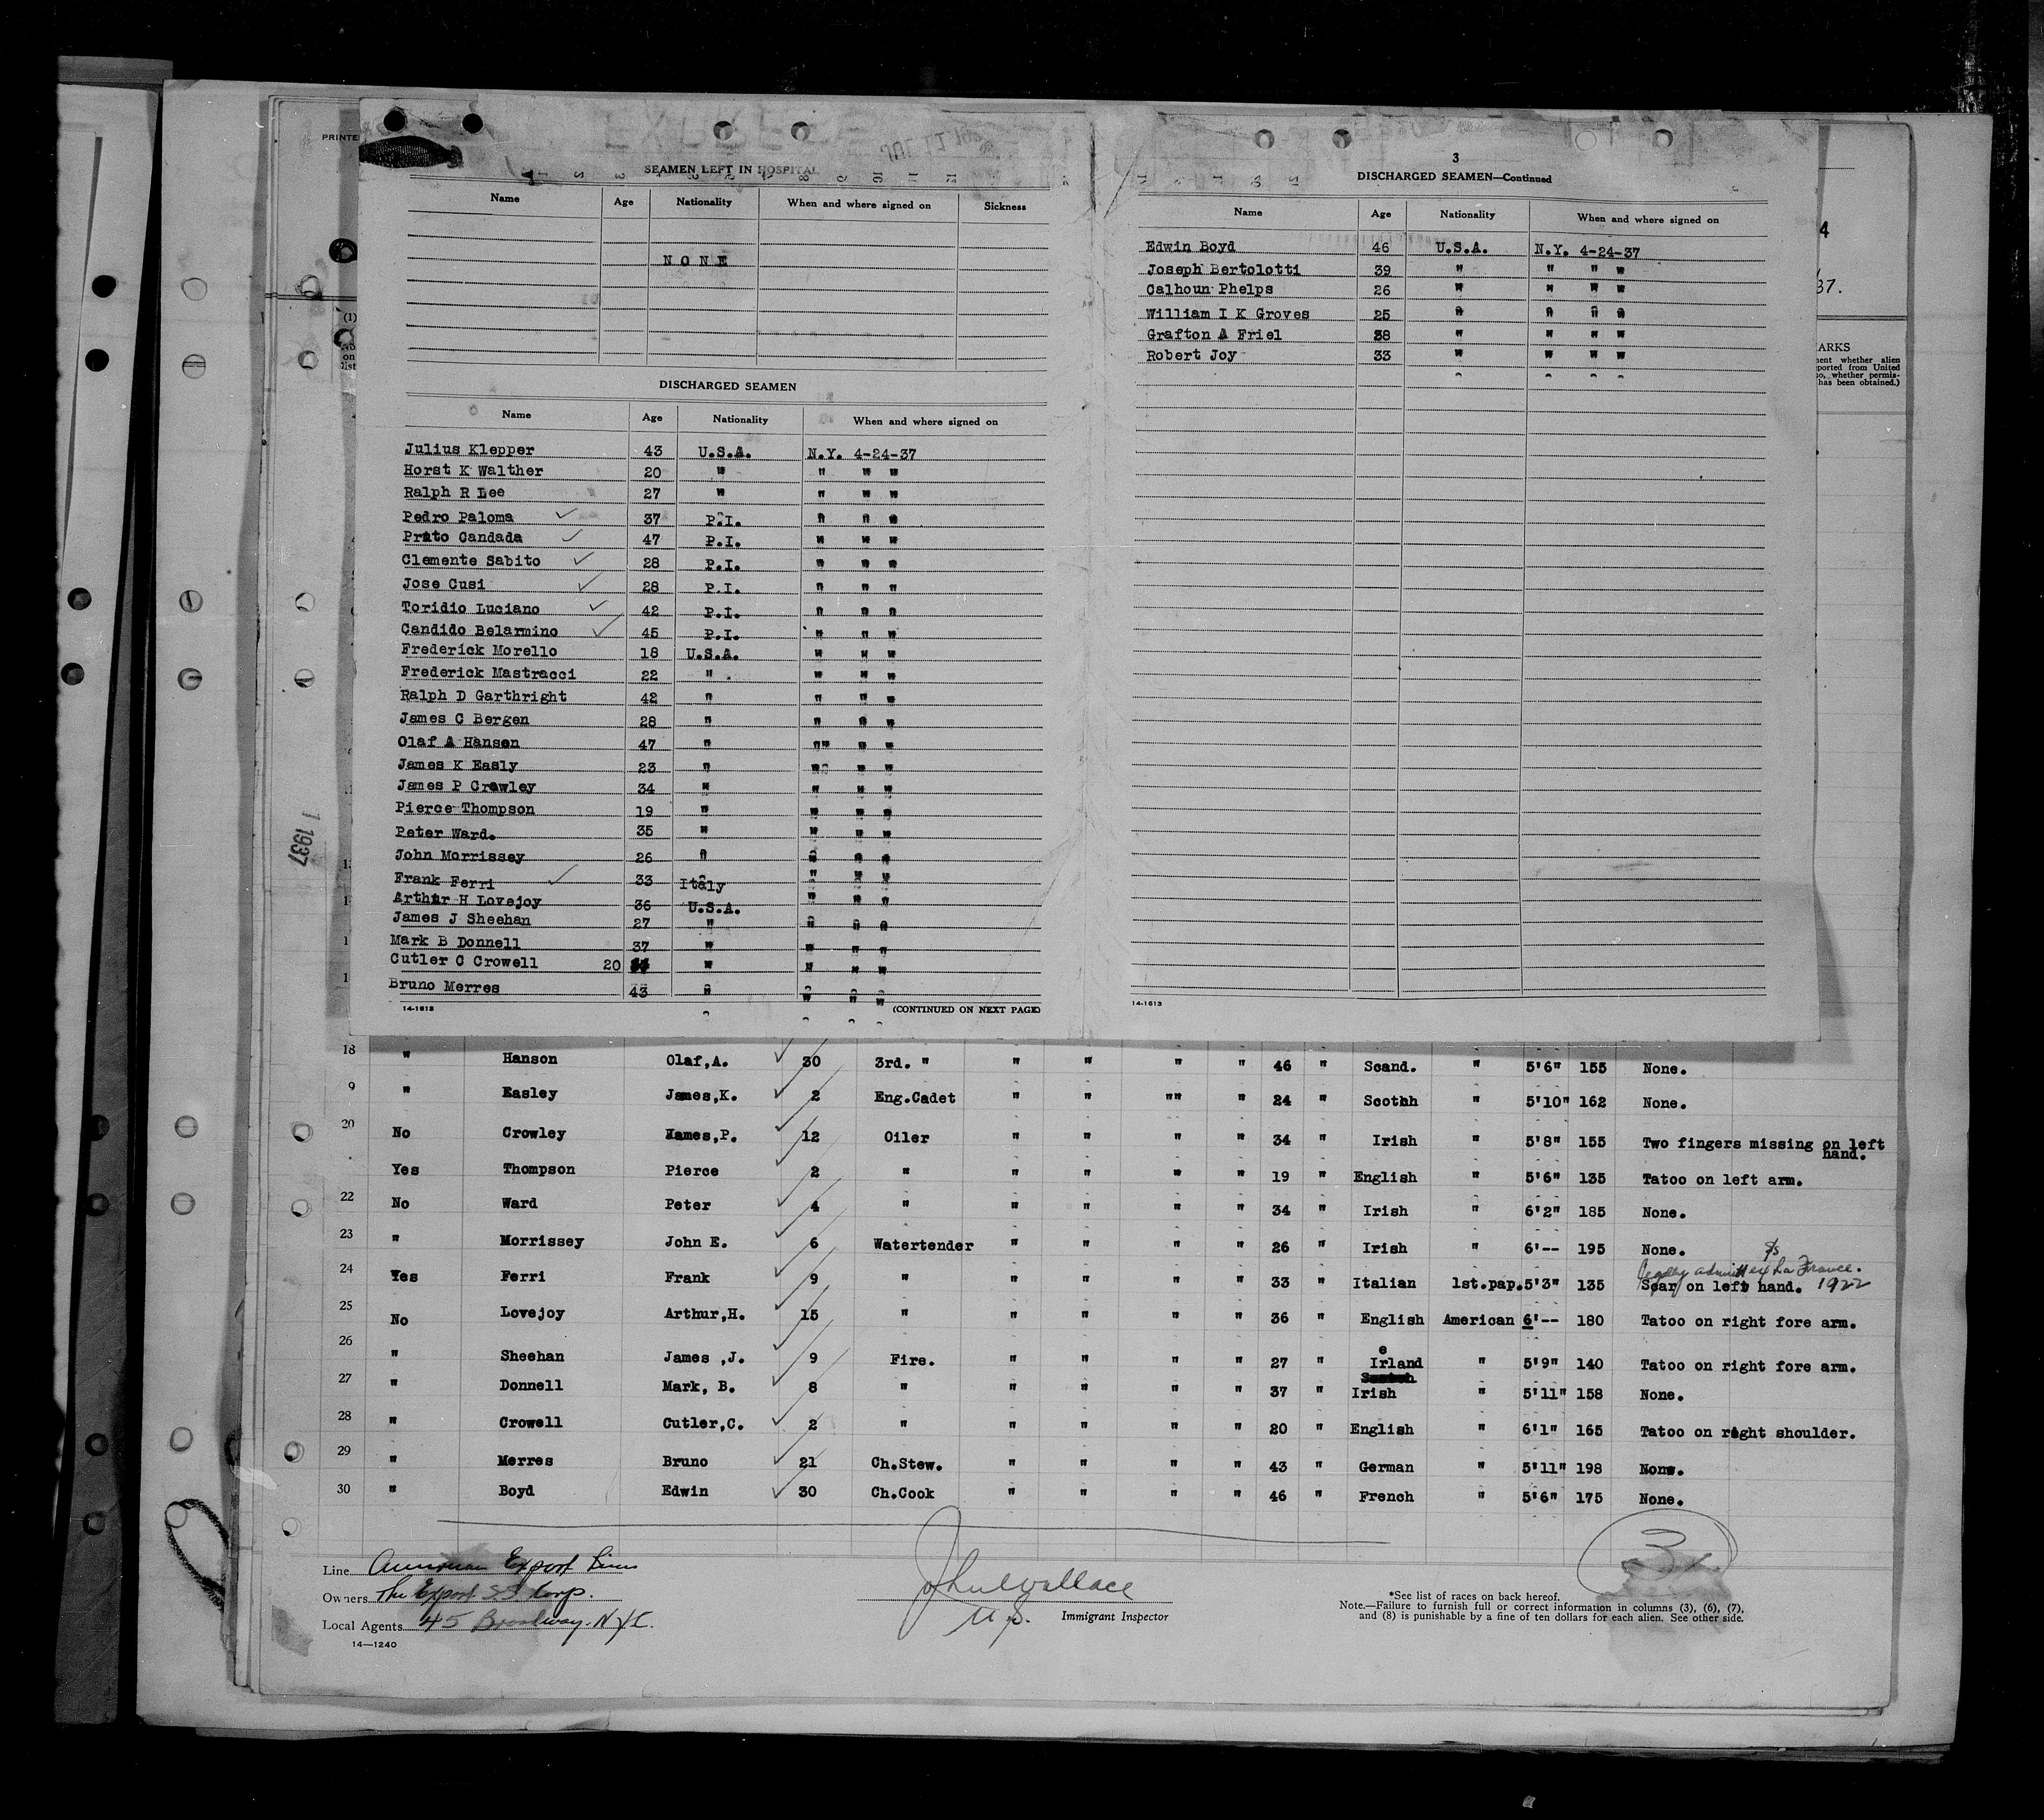 PRINTE
SEAMEN LEFT IN HOSPITAL
Name Age Nationality When and where signed on Sickness
NONE
DISCHARGED SEAMEN
Name Age Nationality When and where signed on
Julius Klepper 43 U.S.A. N.Y. 4-24-37
Horst K Walther 20 " " " "
Ralph R Lee 27 " " " "
Pedro Paloma ✓ 37 P.I. " " "
Prato Candada ✓ 47 P.I. " " "
Clemente Sabito ✓ 28 P.I. " " "
Jose Cusi ✓ 28 P.I. " " "
Toridio Luciano ✓ 42 P.I. " " "
Candido Belarmino ✓ 45 P.I. " " "
Frederick Morello 18 U.S.A. " " "
Frederick Mastracci 22 " " " "
Ralph D Garthright 42 " " " "
James C Bergen 28 " " " "
Olaf A Hansen 47 " "" " "
James K Easly 23 " " " "
James P Crawley 34 " " " "
Pierce Thompson 19 " " " "
Peter Ward. 35 " " " "
John Morrissey 26 " " " "
Frank Ferri ✓ 33 Italy " " "
Arthur H Lovejoy 36 U.S.A. " " "
James J Sheehan 27 " " " "
Mark B Donnell 37 " " " "
Cutler C Crowell 20 " " " "
Bruno Merres 43 " " " "
14-1613 (CONTINUED ON NEXT PAGE)
3
DISCHARGED SEAMEN—Continued
Name Age Nationality When and where signed on
Edwin Boyd 46 U.S.A. N.Y. 4-24-37
Joseph Bertolotti 39 " " " "
Calhoun Phelps 26 " " " "
William I K Groves 25 " " " "
Grafton A Friel 38 " " " "
Robert Joy 33 " " " "
14-1613
4
37.
ARKS
ent whether alien
ported from United
so, whether permis-
has been obtained.)
(1)
on
list
1 1937
18 " Hanson Olaf,A. ✓ 30 3rd. " " " " " 46 " Scand. " 5'6" 155 None.
9 " Easley James,K. ✓ 2 Eng.Cadet " " "" " 24 " Scothh " 5'10" 162 None.
20 No Crowley Hames,P. ✓ 12 Oiler " " " " 34 " Irish " 5'8" 155 Two fingers missing on left
hand.
Yes Thompson Pierce ✓ 2 " " " " " 19 " English " 5'6" 135 Tatoo on left arm.
22 No Ward Peter ✓ 4 " " " " " 34 " Irish " 6'2" 185 None.
23 " Morrissey John E. ✓ 6 Watertender " " " " 26 " Irish " 6'-- 195 None.
Legally admitt ex La France.
24 Yes Ferri Frank ✓ 9 " " " " " 33 " Italian 1st.pap. 5'3" 135 Scar on left hand. 1922
25 No Lovejoy Arthur,H. ✓ 15 " " " " " 36 " English American 6'-- 180 Tatoo on right fore arm.
e
26 " Sheehan James ,J. ✓ 9 Fire. " " " " 27 " Irland " 5'9" 140 Tatoo on right fore arm.
27 " Donnell Mark, B. ✓ 8 " " " " " 37 " Irish " 5'11" 158 None.
28 " Crowell Cutler,C. ✓ 2 " " " " " 20 " English " 6'1" 165 Tatoo on right shoulder.
29 " Merres Bruno ✓ 21 Ch.Stew. " " " " 43 " German " 5'11" 198 None.
30 " Boyd Edwin ✓ 30 Ch.Cook " " " " 46 " French " 5'6" 175 None.
Line American Export Lines
Owners The Export SS Corp.
Local Agents 45 Broadway. NYC.
14—1240
John Wallace
U.S. Immigrant Inspector
3
*See list of races on back hereof.
Note.—Failure to furnish full or correct information in columns (3), (6), (7),
and (8) is punishable by a fine of ten dollars for each alien. See other side.